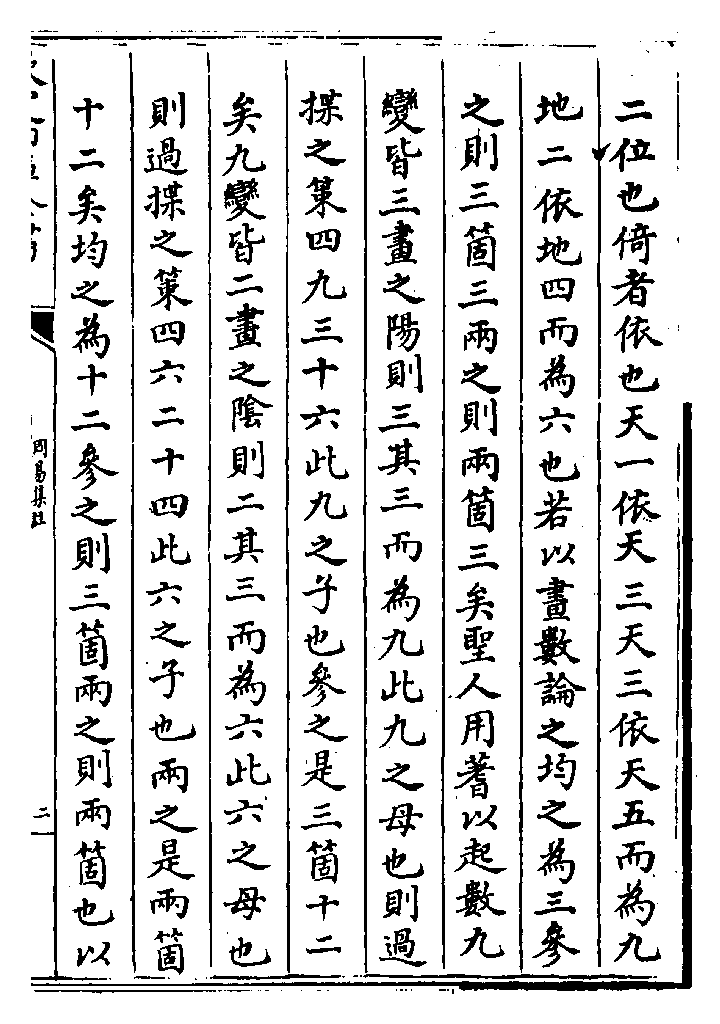 二位也倚者依也天一依天三天三依天五而為九
地二依地四而為六也若以畫數論之均之為三參
之則三箇三兩之則兩箇三矣聖人用蓍以起數九
變皆三畫之陽則三其三而為九此九之母也則過
揲之策四九三十六此九之子也參之是三箇十二
矣九變皆二畫之陰則二其三而為六此六之母也
則過揲之策四六二十四此六之子也兩之是兩箇
十二矣均之為十二參之則三箇兩之則兩箇也以
周易集註
二